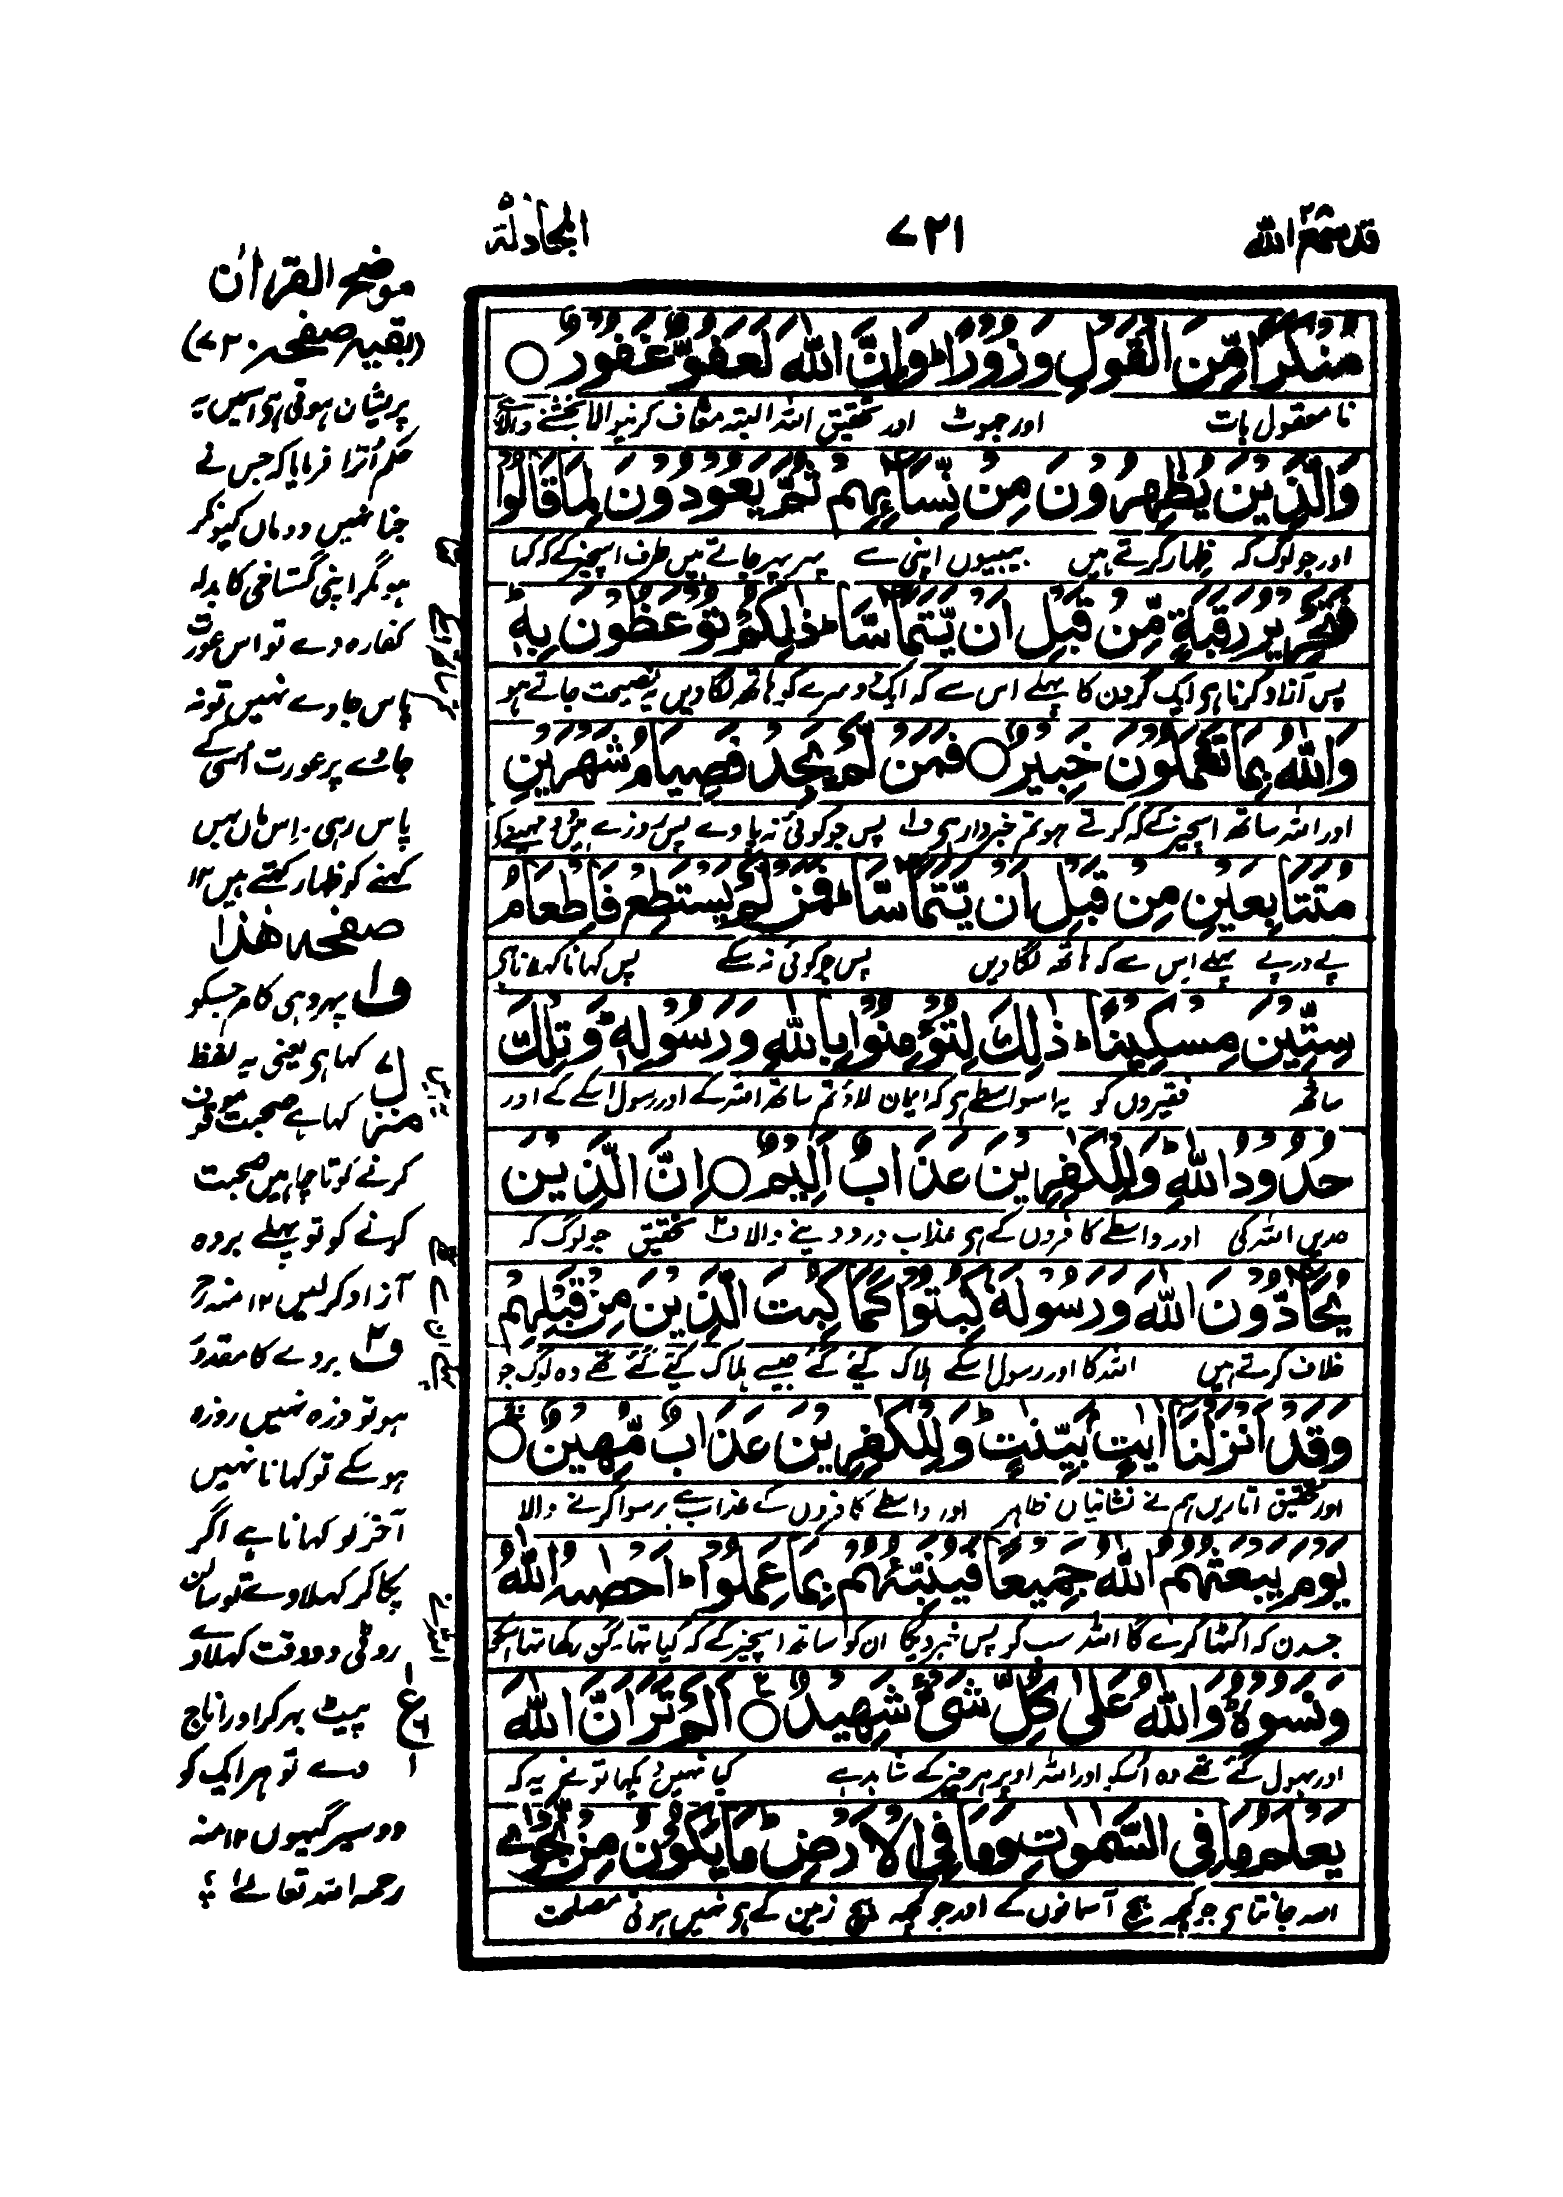 قد سمع الله ۲۸
۷۲۱
المجادلة ۵۸
مُنْكَرًا مِّنَ الْقَوْلِ وَزُوْرًا ؕ وَاِنَّ اللّٰهَ لَعَفُوٌّ غَفُوْرٌ ○
نا معقول بات اور جھوٹ اور تحقیق اللہ البتہ معاف کرنیوالا بخشنے والا ہے
وَالَّذِيْنَ يُظٰهِرُوْنَ مِنْ نِّسَآئِهِمْ ثُمَّ يَعُوْدُوْنَ لِمَا قَالُوْا
اور جو لوگ کہ ظہار کرتے ہیں بیبیوں اپنی سے پہر پہر جاتے ہیں طرف اسچیز کے کہ کہا
فَتَحْرِيْرُ رَقَبَةٍ مِّنْ قَبْلِ اَنْ يَّتَمَآسَّا ؕ ذٰلِكُمْ تُوْعَظُوْنَ بِهٖ ؕ
پس آزاد کرنا ہی ایک گردن کا پہلے اس سے کہ ایک دوسرے کو ہاتھ لگا دیں یہ نصیحت جاتے ہو
وَاللّٰهُ بِمَا تَعْمَلُوْنَ خَبِيْرٌ ○ فَمَنْ لَّمْ يَجِدْ فَصِيَامُ شَهْرَيْنِ
اور اللہ ساتھ اسچیز کے کہ کرتے ہو تم خبردار ہی ف۱ پس جو کوئی نہ پاوے پس روزے ہیں دو مہینے کے
مُتَتَابِعَيْنِ مِنْ قَبْلِ اَنْ يَّتَمَآسَّا ؕ فَمَنْ لَّمْ يَسْتَطِعْ فَاِطْعَامُ
پے درپے پہلے اس سے کہ ہاتھ لگا دیں پس جو کوئی نہ سکے پس کہانا کہلانا ہی
سِتِّيْنَ مِسْكِيْنًا ؕ ذٰلِكَ لِتُؤْمِنُوْا بِاللّٰهِ وَرَسُوْلِهٖ ؕ وَتِلْكَ
ساٹھ فقیروں کو یہ اسواسطے ہی کہ ایمان لاؤ تم ساتھ اللہ کے اور رسول اسکے کے اور
حُدُوْدُ اللّٰهِ ؕ وَلِلْكٰفِرِيْنَ عَذَابٌ اَلِيْمٌ ○ اِنَّ الَّذِيْنَ
حدیں اللہ کی اور واسطے کافروں کے ہی عذاب درد دینے والا ف۲ تحقیق جو لوگ کہ
يُحَآدُّوْنَ اللّٰهَ وَرَسُوْلَهٗ كُبِتُوْا كَمَا كُبِتَ الَّذِيْنَ مِنْ قَبْلِهِمْ
خلاف کرتے ہیں اللہ کا اور رسول اسکے ہلاک کیے گئے جیسے ہلاک کیے گئے تھے وہ لوگ جو
وَقَدْ اَنْزَلْنَآ اٰيٰتٍ بَيِّنٰتٍ ؕ وَلِلْكٰفِرِيْنَ عَذَابٌ مُّهِيْنٌ ○
اور تحقیق اتاریں ہم نے نشانیاں ظاہر اور واسطے کافروں کے عذاب ہے رسوا کرنے والا
يَوْمَ يَبْعَثُهُمُ اللّٰهُ جَمِيْعًا فَيُنَبِّئُهُمْ بِمَا عَمِلُوْا ؕ اَحْصٰىهُ اللّٰهُ
جسدن کہ اکٹھا کرے گا اللہ سب کو پس خبر دیگا ان کو ساتھ اسچیز کے کہ کیا تہا گن رکھا تہا اسکو
وَنَسُوْهُ ؕ وَاللّٰهُ عَلٰى كُلِّ شَىْءٍ شَهِيْدٌ ○ اَلَمْ تَرَ اَنَّ اللّٰهَ
اور بہول گئے تھے وہ اسکو اور اللہ اوپر ہر چیز کے شاہد ہے کیا نہیں دیکہا تو نے یہ کہ
يَعْلَمُ مَا فِى السَّمٰوٰتِ وَمَا فِى الْاَرْضِ ؕ مَا يَكُوْنُ مِنْ نَّجْوٰى
اللہ جانتا ہی جو کچہ بیچ آسمانوں کے اور جو کچہ بیچ زمین کے ہی نہیں ہوتی مصلحت
موضح القرآن
(بقیہ صفحہ ۷۲۰)
پریشان ہوتی ہی اسمیں یہ
حکم اُترا فرمایا کہ جس نے
جنا نہیں وہ ماں کیونکر
ہو مگر اپنی گستاخی کا بدلہ
کفارہ دے تو اس عورت
پاس جاوے نہیں تو نہ
جاوے پر عورت اُسی کے
پاس رہی. اِس ماں بہن
کہنے کو ظہار کہتے ہیں ۱۲
صفحہ ھٰذا
ف۱ پہر وہی کام جسکو
کہا ہی یعنی یہ لفظ
کہا ہے صحبت موقوف
کرنے کو تا چاہیں صحبت
کرنے کو تو پہلے بردہ
آزاد کرلیں ۱۲ منہ رح
ف۲ بردے کا مقدور
ہو تو روزہ نہیں روزہ
ہو سکے تو کہانا نہیں
آخر کو کہانا ہے اگر
پکا کر کہلاوے تو سالن
روٹی دو وقت کہلاوے
پیٹ بہر کر اور اناج
دے تو ہر ایک کو
دو سیر گیہوں ۱۲ منہ
رحمہ اللہ تعالےٰ
منزل ۷
ع